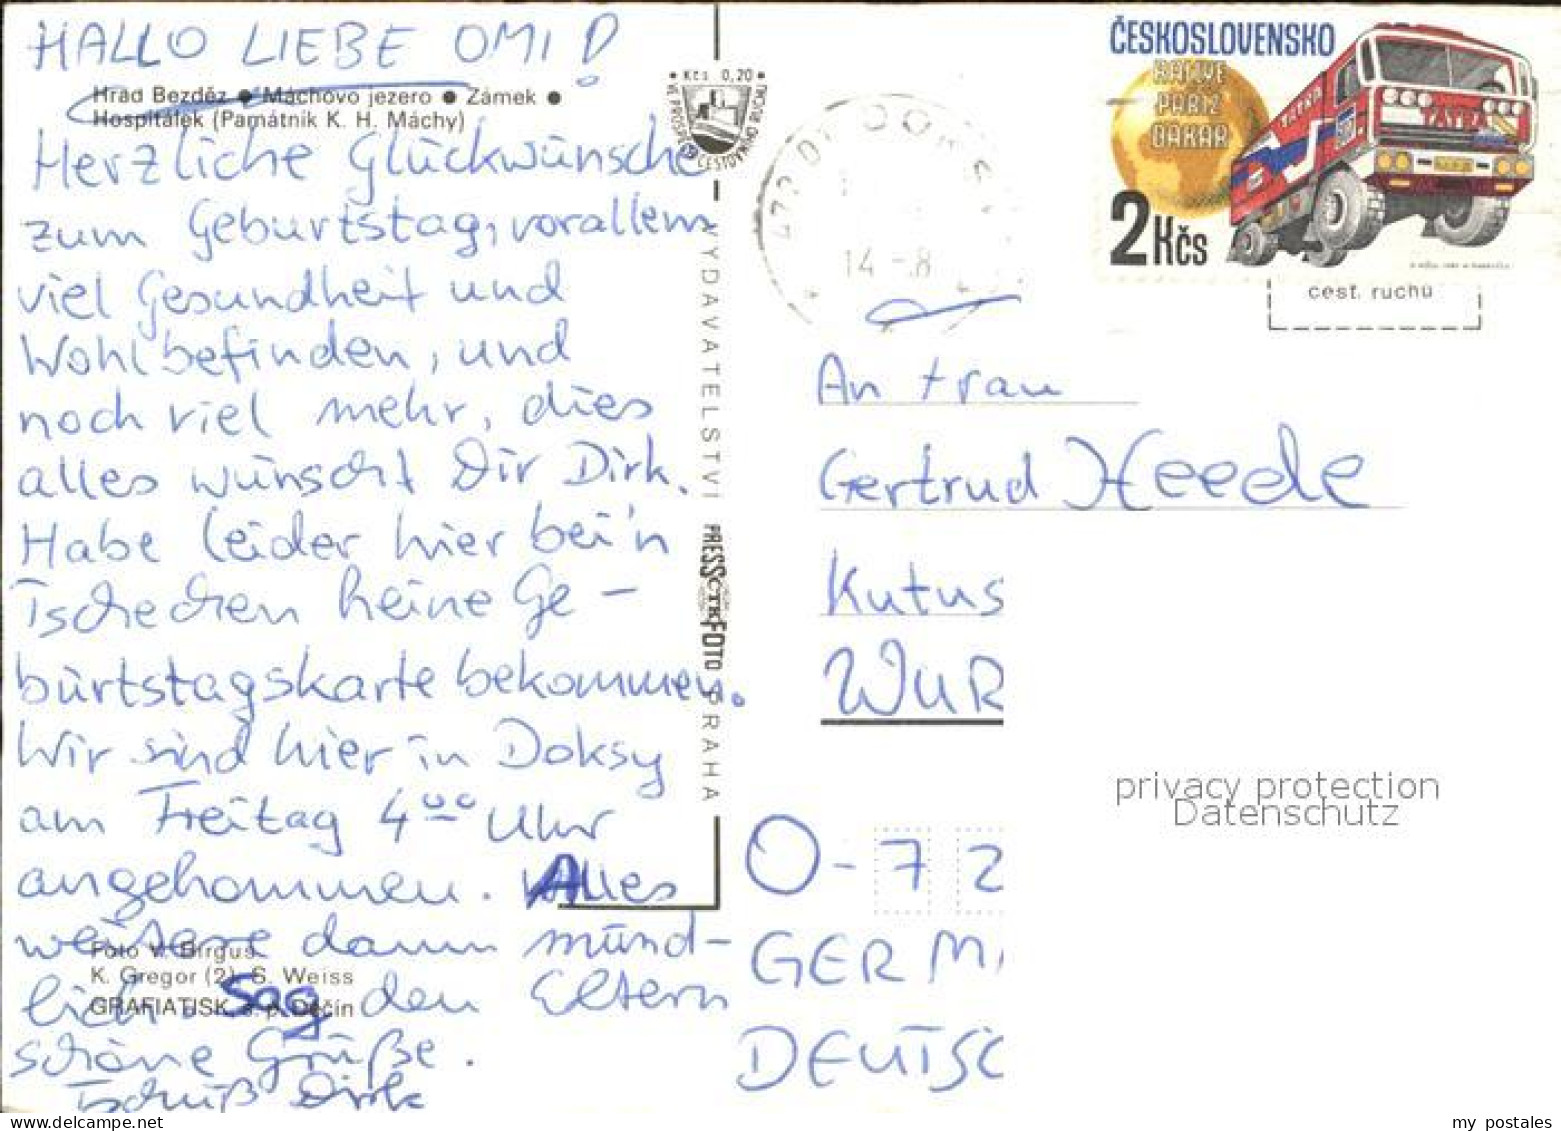 HALLO LIEBE OMI!
Hrad Bezděz ● Máchovo jezero ● Zámek ●
Hospitálek (Památník K. H. Máchy)
Herzliche Glückwünsche
zum Geburtstag, vorallem
viel Gesundheit und
Wohlbefinden, und
noch viel mehr, dies
alles wünscht Dir Dirk.
Habe leider hier bei'n
Tschechen keine Ge-
burtstagskarte bekommen.
Wir sind hier in Doksy
am Freitag 4⁰⁰ Uhr
angekommen. Alles
weitere dann münd-
Foto V. Birgus
K. Gregor (2), S. Weiss
lich. Sag den Eltern
GRAFIATISK s. p. Děčín
schöne Grüße.
Tschüß Dirk
Kčs 0,20
VE PROSPĚCH CESTOVNÍHO RUCHU
VYDAVATELSTVÍ PRESSFOTO PRAHA
14.-8
ČESKOSLOVENSKO
RALLYE
PARIZ
DAKAR
TATRA
TATRA
2 Kčs
cest. ruchu
An Frau
Gertrud Heede
Kutus
WUR
O-72
GERMA
DEUTSC
privacy protection
Datenschutz
my postales